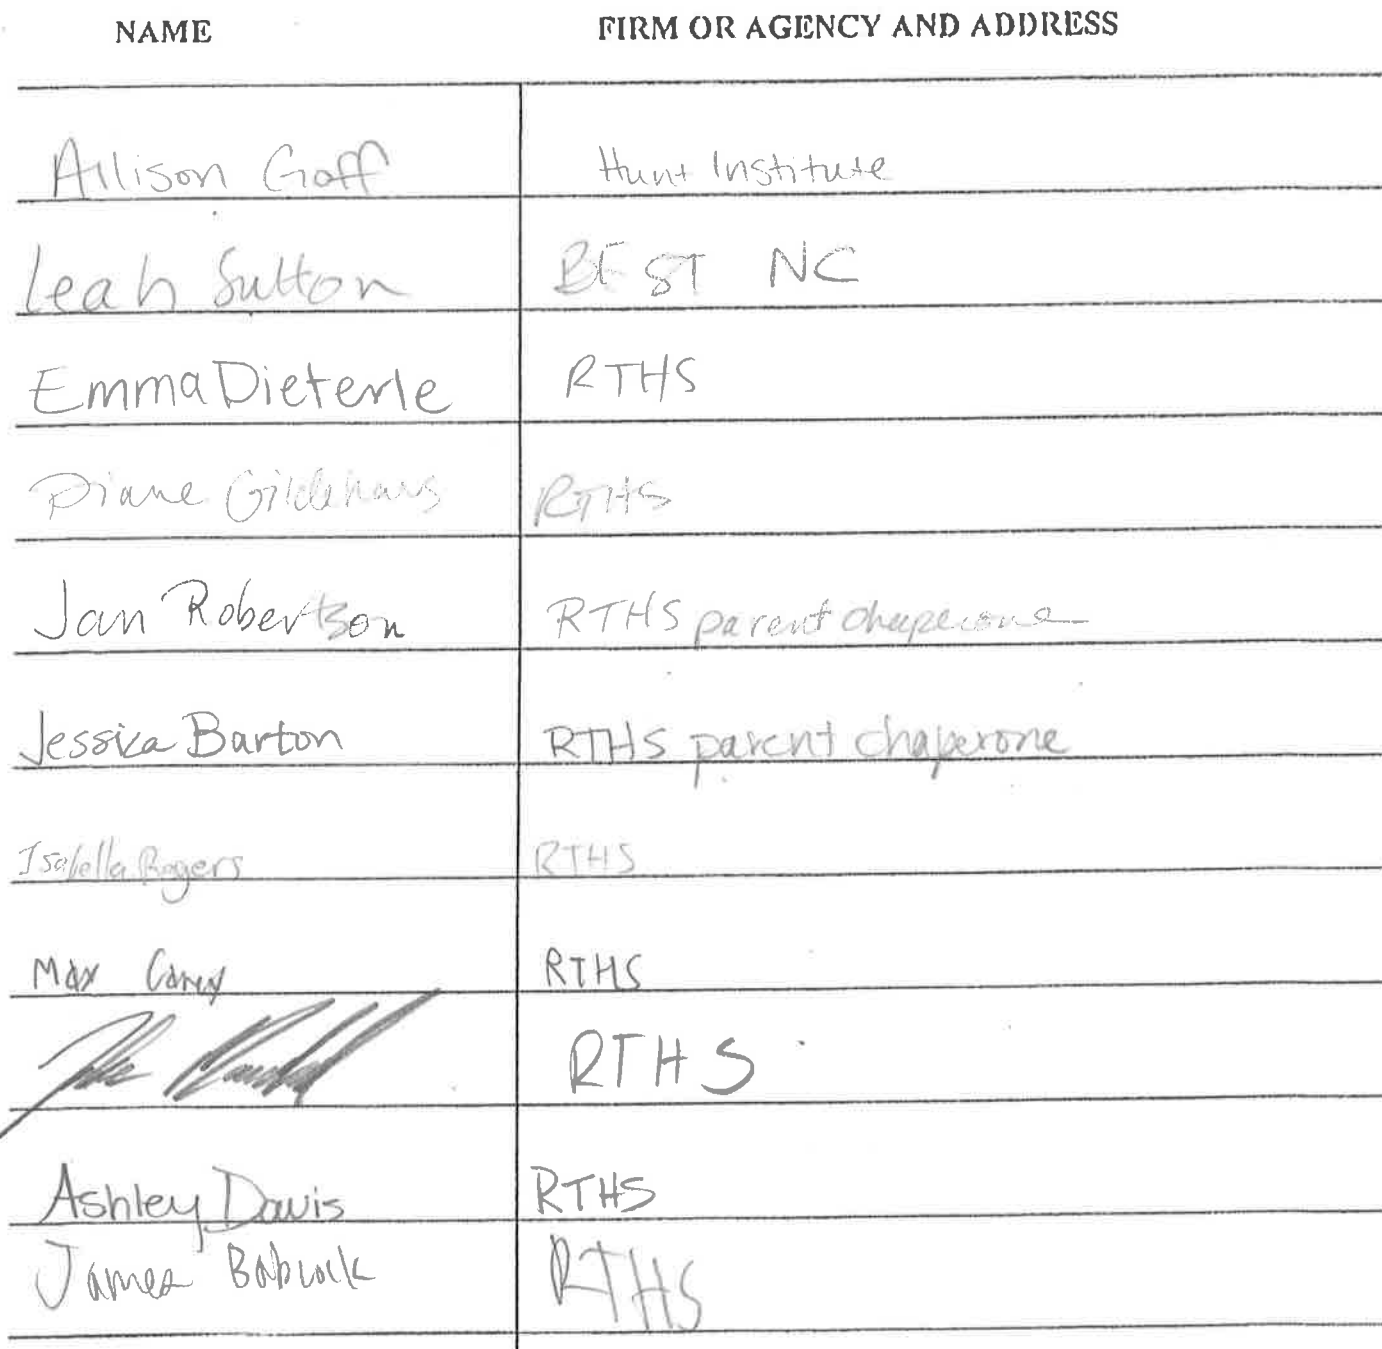 NAME FIRM OR AGENCY AND ADDRESS
Allison Goff Hunt Institute
Leah Sutton BEST NC
Emma Dieterle RTHS
Diane Gildehaus RTHS
Jan Robertson RTHS parent chaperone
Jessica Barton RTHS parent chaperone
Isabella Rogers RTHS
Max Carey RTHS
RTHS
Ashley Davis RTHS
James Babcock RTHS